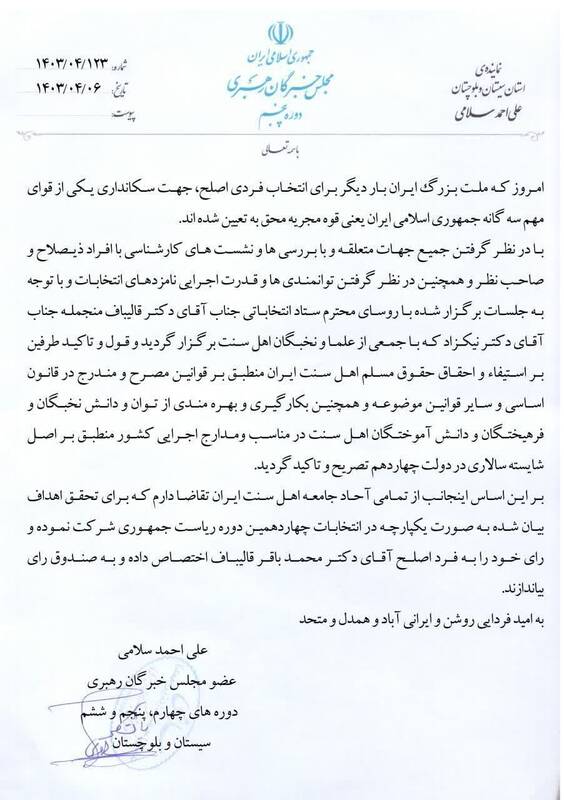 جمهوری اسلامی ایران
مجلس خبرگان رهبری
دوره پنجم
نماینده‌ی
استان سیستان و بلوچستان
علی احمد سلامی
شماره: ۱۴۰۳/۰۴/۱۲۳
تاریخ: ۱۴۰۳/۰۴/۰۶
پیوست:
باسمه تعالی
امروز که ملت بزرگ ایران بار دیگر برای انتخاب فردی اصلح، جهت سکانداری یکی از قوای
مهم سه گانه جمهوری اسلامی ایران یعنی قوه مجریه محق به تعیین شده اند.
با در نظر گرفتن جمیع جهات متعلقه و با بررسی ها و نشست های کارشناسی با افراد ذیصلاح و
صاحب نظر و همچنین در نظر گرفتن توانمندی ها و قدرت اجرایی نامزدهای انتخابات و با توجه
به جلسات برگزار شده با روسای محترم ستاد انتخاباتی جناب آقای دکتر قالیباف منجمله جناب
آقای دکتر نیکزاد که با جمعی از علما و نخبگان اهل سنت برگزار گردید و قول و تاکید طرفین
بر استیفاء و احقاق حقوق مسلم اهل سنت ایران منطبق بر قوانین مصرح و مندرج در قانون
اساسی و سایر قوانین موضوعه و همچنین بکارگیری و بهره مندی از توان و دانش نخبگان و
فرهیختگان و دانش آموختگان اهل سنت در مناسب ومدارج اجرایی کشور منطبق بر اصل
شایسته سالاری در دولت چهاردهم تصریح و تاکید گردید.
بر این اساس اینجانب از تمامی آحاد جامعه اهل سنت ایران تقاضا دارم که برای تحقق اهداف
بیان شده به صورت یکپارچه در انتخابات چهاردهمین دوره ریاست جمهوری شرکت نموده و
رای خود را به فرد اصلح آقای دکتر محمد باقر قالیباف اختصاص داده و به صندوق رای
بیاندازند.
به امید فردایی روشن و ایرانی آباد و همدل و متحد
علی احمد سلامی
عضو مجلس خبرگان رهبری
دوره های چهارم، پنجم و ششم
سیستان و بلوچستان